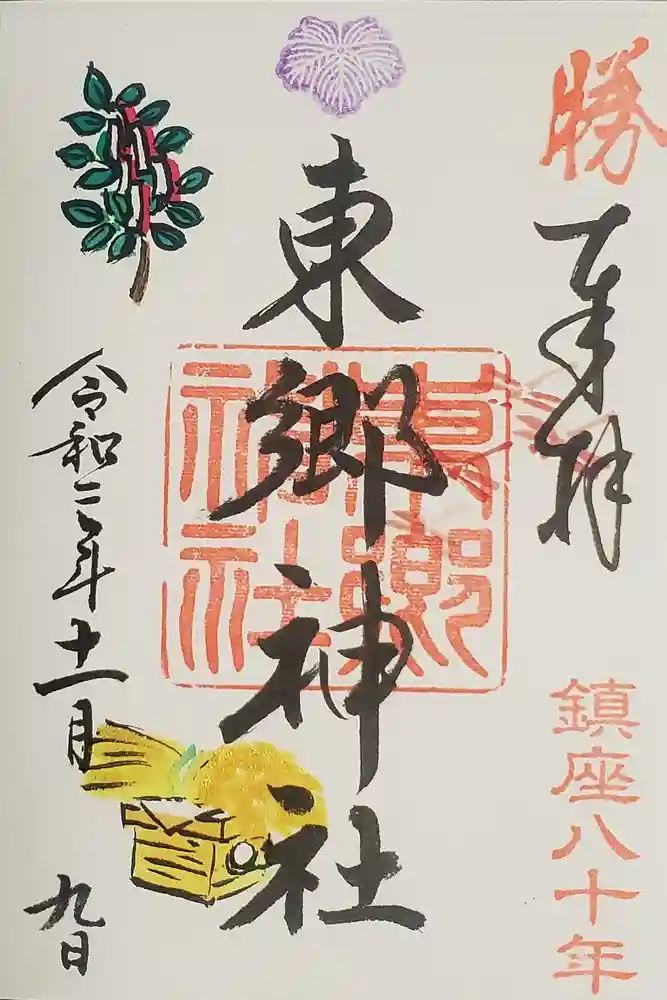 勝
奉拝
鎮座八十年
東郷神社
東郷
神社
令和二年十一月九日